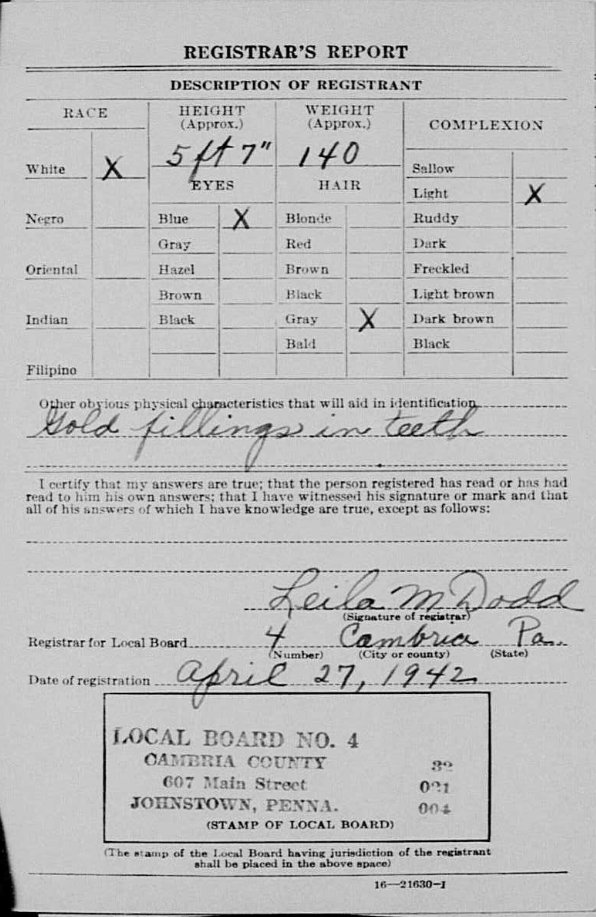 REGISTRAR'S REPORT
DESCRIPTION OF REGISTRANT
RACE
HEIGHT
(Approx.)
WEIGHT
(Approx.)
COMPLEXION
5 ft 7"
140
White X
EYES
HAIR
Sallow
Light X
Negro
Blue X
Blonde
Ruddy
Gray
Red
Dark
Oriental
Hazel
Brown
Freckled
Brown
Black
Light brown
Indian
Black
Gray X
Dark brown
Bald
Black
Filipino
Other obvious physical characteristics that will aid in identification
Gold fillings in teeth
I certify that my answers are true; that the person registered has read or has had
read to him his own answers; that I have witnessed his signature or mark and that
all of his answers of which I have knowledge are true, except as follows:
Leila M Dodd
(Signature of registrar)
Registrar for Local Board 4 Cambria Pa.
(Number) (City or county) (State)
Date of registration April 27, 1942
LOCAL BOARD NO. 4
CAMBRIA COUNTY 32
607 Main Street 021
JOHNSTOWN, PENNA. 004
(STAMP OF LOCAL BOARD)
(The stamp of the Local Board having jurisdiction of the registrant
shall be placed in the above space)
16—21630-1